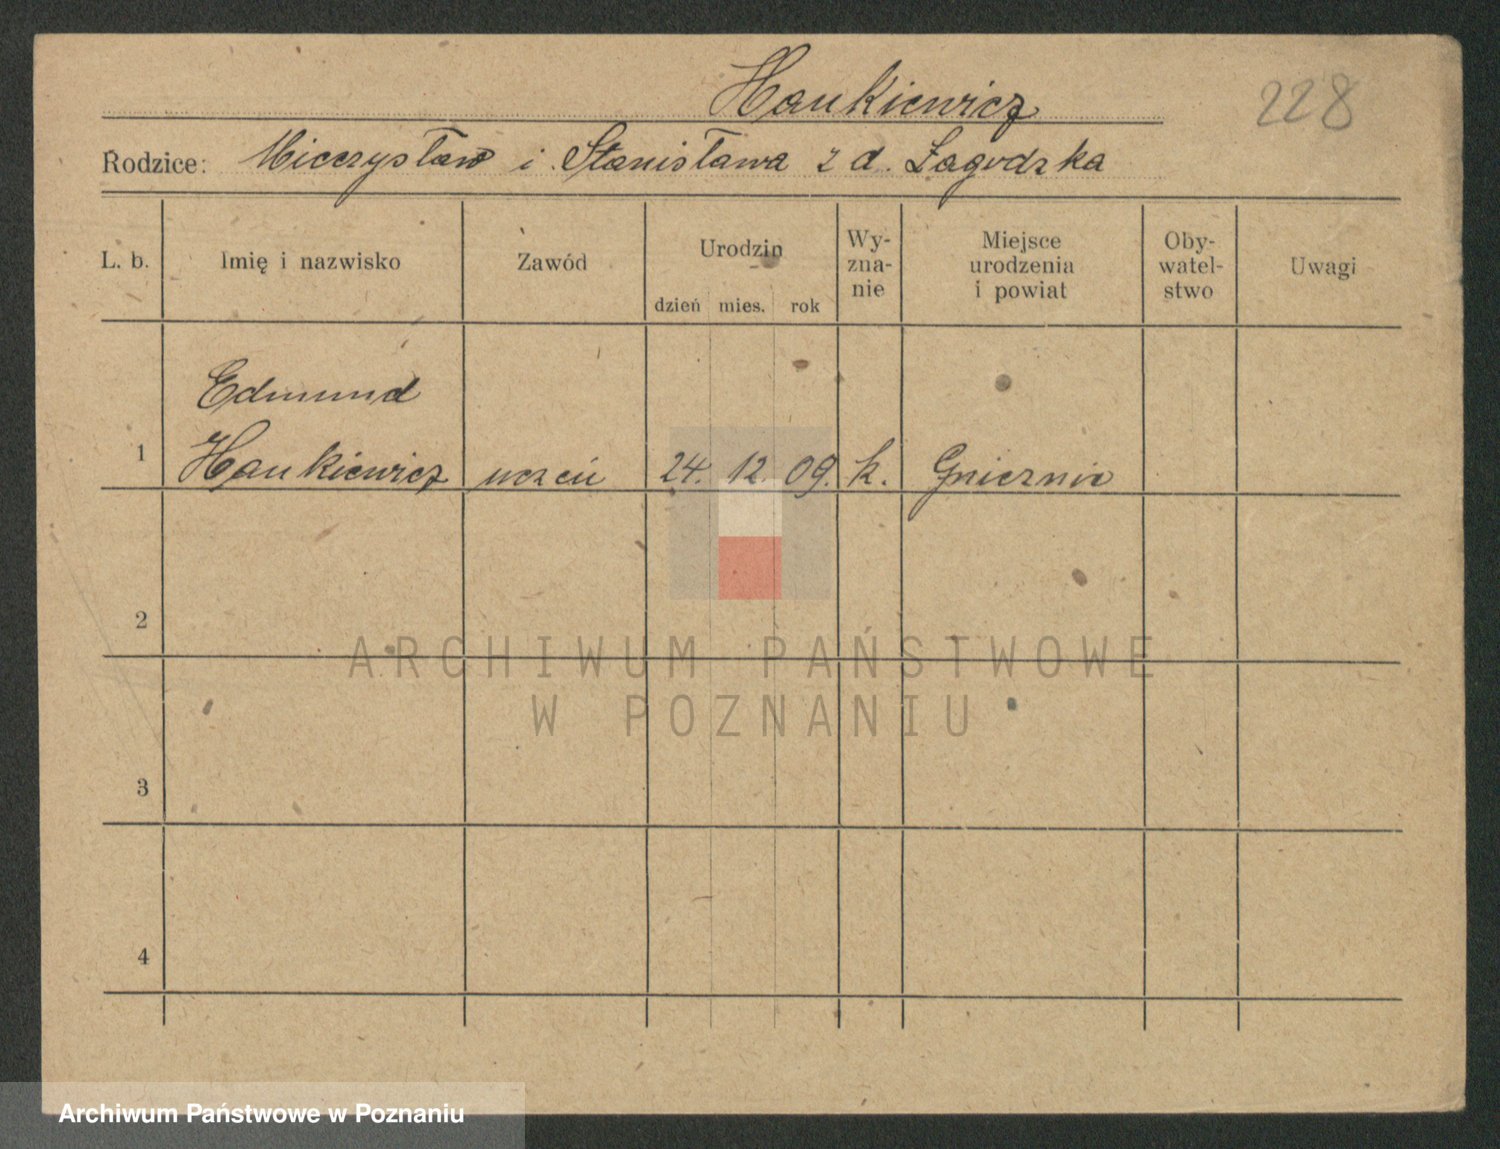 Haukiewicz
228
Rodzice: Mieczysław i Stanisława z d. Zagodzka
L. b.
Imię i nazwisko
Zawód
Urodzin
dzień mies. rok
Wy-
zna-
nie
Miejsce
urodzenia
i powiat
Oby-
watel-
stwo
Uwagi
Edmund
1 Haukiewicz uczeń 24. 12. 09. k. Gnieznie
2
3
4
ARCHIWUM PAŃSTWOWE
W POZNANIU
Archiwum Państwowe w Poznaniu